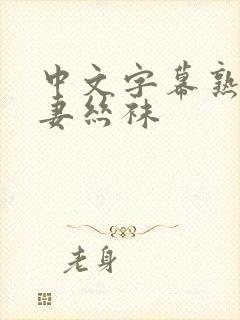 中文字幕熟
妻絲袜
老身